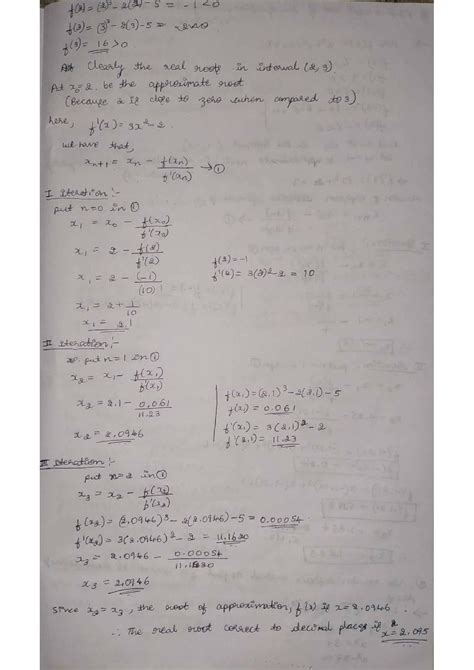 f(2) = (2)³ - 2(2) - 5 = -1 < 0
f(3) = (3)³ - 2(3) - 5 =
f(3) = 16 > 0
Clearly the real roots in interval (2, 3)
Put x₀ = 2 be the approximate root
(Because 2 is close to zero when compared to 3)
here, f'(x) = 3x² - 2.
we have that,
xₙ₊₁ = xₙ - f(xₙ)/f'(xₙ) → ①
I Iteration :-
put n=0 in ①
x₁ = x₀ - f(x₀)/f'(x₀)
x₁ = 2 - f(2)/f'(2)
f(2) = -1
x₁ = 2 - (-1)/(10)
f'(2) = 3(2)² - 2 = 10
x₁ = 2 + 1/10
x₁ = 2.1
II Iteration :-
put n=1 in ①
x₂ = x₁ - f(x₁)/f'(x₁)
x₂ = 2.1 - 0.061/11.23
x₂ = 2.0946
f(x₁) = (2.1)³ - 2(2.1) - 5
f(x₁) = 0.061
f'(x₁) = 3(2.1)² - 2
f'(2.1) = 11.23
III Iteration :-
put n=2 in ①
x₃ = x₂ - f(x₂)/f'(x₂)
f(x₂) = (2.0946)³ - 2(2.0946) - 5 = 0.00054
f'(x₂) = 3(2.0946)² - 2 = 11.1620
x₃ = 2.0946 - 0.00054/11.1620
x₃ = 2.0946
Since x₂ = x₃, the root of approximation, f(x) is x = 2.0946.
∴ The real root correct to decimal places is x = 2.095